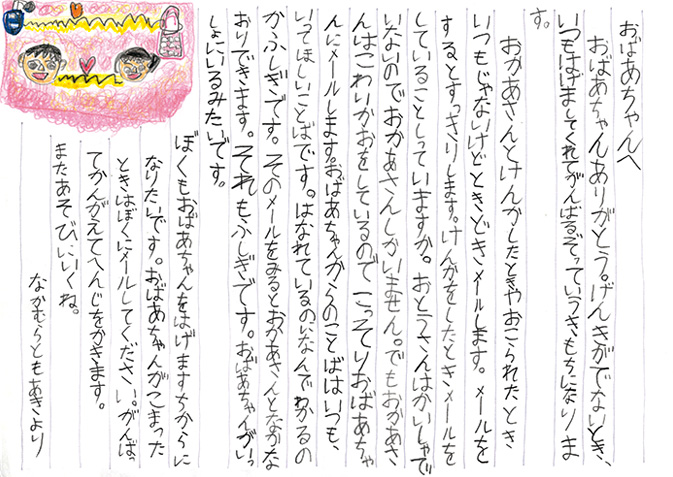 おばあちゃんへ
おばあちゃんありがとう。げんきがでないとき、
いつもはげましてくれてがんばるぞっていうきもちになりま
す。
おかあさんとけんかしたときやおこられたとき
いつもじゃないけどときどきメールします。メールを
するとすっきりします。けんかをしたときメールを
していることしっていますか。おとうさんはかいしゃで
いないのでおかあさんしかいません。でもおかあさ
んはこわいかおをしているのでこっそりおばあちゃ
んにメールします。おばあちゃんからのことばはいつも、
いってほしいことばです。はなれているのになんでわかるの
かふしぎです。そのメールをみるとおかあさんとなかな
おりできます。それもふしぎです。おばあちゃんがいっ
しょにいるみたいです。
ぼくもおばあちゃんをはげますちからに
なりたいです。おばあちゃんがこまった
ときはぼくにメールしてください。がんばっ
てかんがえてへんじをかきます。
またあそびにいくね。
なかむらともあきより